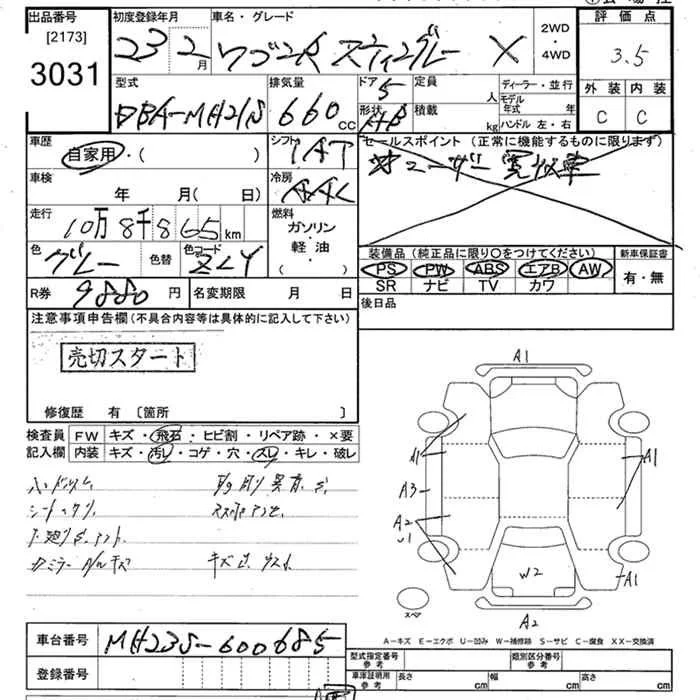 出品番号
[2173]
3031
初度登録年月
23 2月
車名・グレード
ワゴンR スティングレー X
2WD
・
4WD
評価点
3.5
外装 内装
C C
型式
DBA-MH21S
排気量
660 cc
ドア
5
形状
HB
定員
人
積載
kg
ディーラー・並行
モデル年式 年
ハンドル 左・右
車歴
自家用・( )
シフト
IAT
セールスポイント (正常に機能するものに限ります)
車検
年 月( 日)
冷房
AAC
走行
10万8千865km
燃料
ガソリン
軽・油
・( )
色
グレー
色替
色コード
ZLY
装備品 (純正品に限り〇をつけてください)
PS PW ABS エアB AW
SR ナビ TV カワ
新車保証書
有・無
R券
9880円
名変期限 月 日
後日品
注意事項申告欄(不具合内容等は具体的に記入して下さい)
売切スタート
修復歴 有 〔箇所 〕
検査員記入欄
FW キズ・飛石・ヒビ割・リペア跡・×要
内装 キズ・汚レ・コゲ・穴・スレ・キレ・破レ
A1
A1
A1
A3
A2
U1
W2
A1
A2
スペア
A−キズ E−エクボ U−凹み W−補修跡 S−サビ C−腐食 XX−交換済
車台番号
MH23S-600685
登録番号
型式指定番号
参考
類別区分番号
参考
車庫証明用
参考
長さ cm
幅 cm
高さ cm